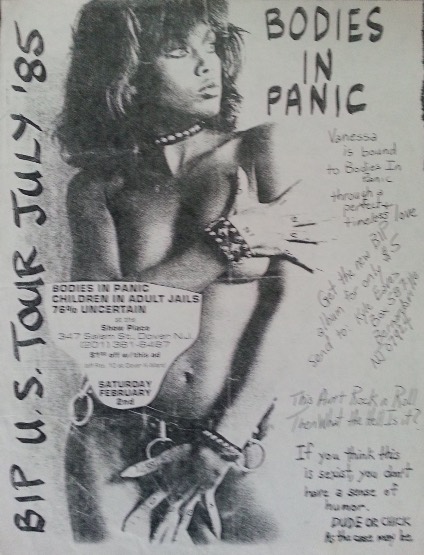 BODIES
IN
PANIC
BIP U.S. TOUR JULY '85
Vanessa
is bound
to Bodies In
Panic
through a
perfect,
timeless love
Get the new BIP
album for only $5
send to:
Box
NJ
BODIES IN PANIC
CHILDREN IN ADULT JAILS
76% UNCERTAIN
at the
Show Place
347 Salem St., Dover N.J.
(201) 361-6487
$1.00 off w/this ad
SATURDAY
FEBRUARY
2nd
This Ain't Rock n Roll
Then What the Hell Is it?
If you think this
is sexist, you don't
have a sense of
humor.
DUDE OR CHICK
As the case may be.